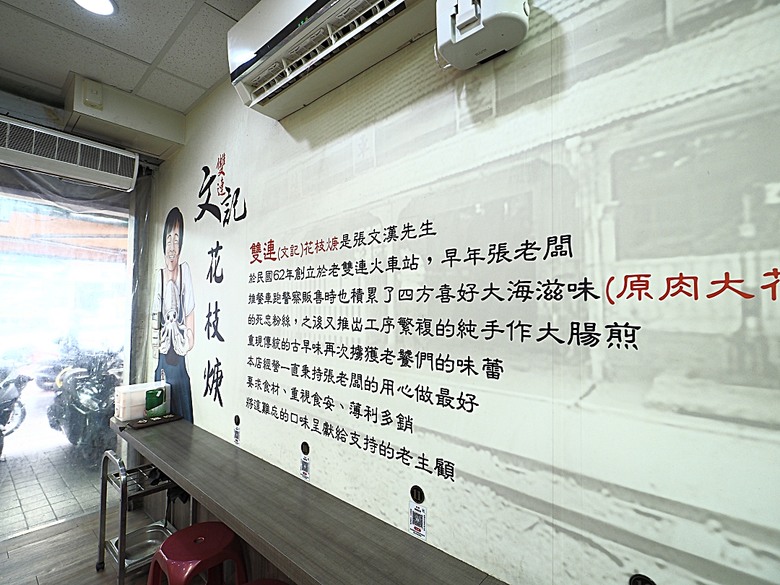 雙連
文記
花枝焿
雙連(文記)花枝焿是張文漢先生
於民國62年創立於老雙連火車站，早年張老闆
推餐車跑警察販售時也積累了四方喜好大海滋味(原肉大花
的死忠粉絲，之後又推出工序繁複的純手作大腸煎
重現傳統的古早味再次擄獲老饕們的味蕾
本店經營一直秉持張老闆的用心做最好
要求食材、重視食安、薄利多銷
將這難忘的口味呈獻給支持的老主顧
11